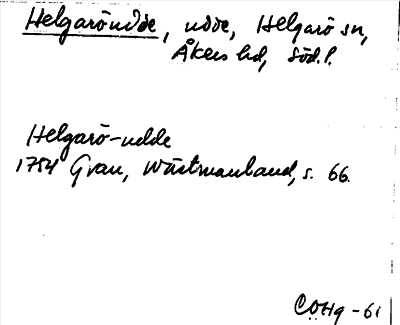 Helgaröudde, udde, Helgarö sn,
Åkers hd, Söd.l.
Helgarö-udde
1754 Grau, Wästmanland, s. 66.
COHg-61